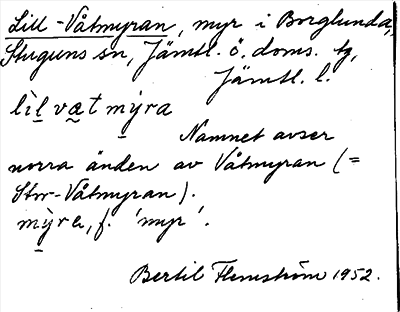 Lill-Våtmyran, myr i Borglunda,
Stuguns sn, Jämtl. ö. doms. tg,
Jämtl. l.
lìl̠ væ̠t mỳ̠ra
Namnet avser
norra änden av Våtmyran (=
Stor-Våtmyran).
mỳ̠ra, f. 'myr'.
Bertil Flemström 1952.